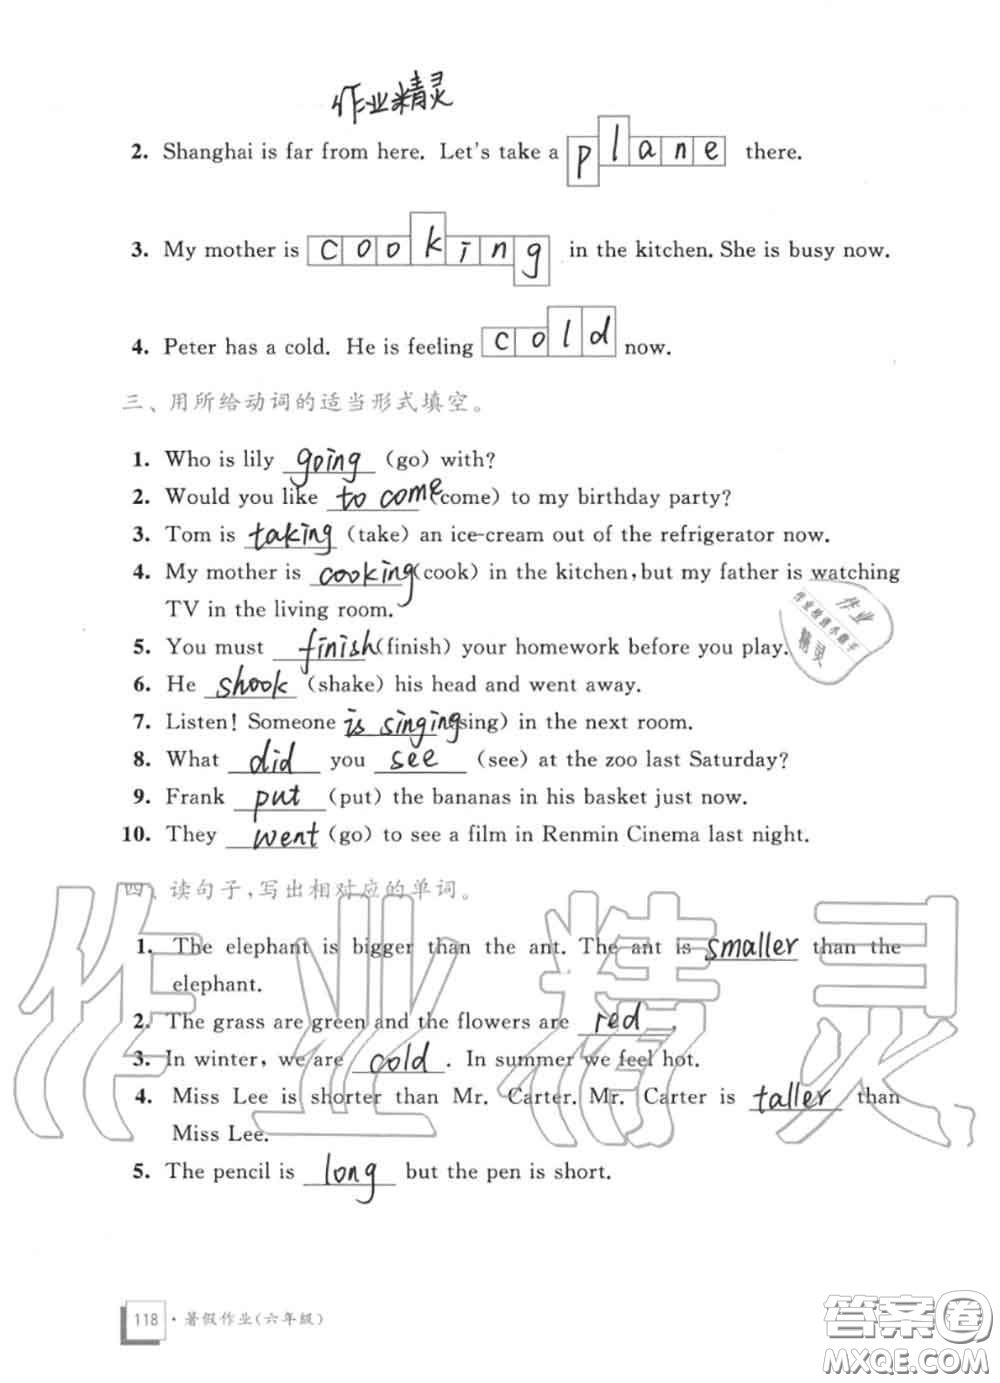 作业精灵
2. Shanghai is far from here. Let's take a plane there.
3. My mother is cooking in the kitchen. She is busy now.
4. Peter has a cold. He is feeling cold now.
三、用所给动词的适当形式填空。
1. Who is lily going (go) with?
2. Would you like to come (come) to my birthday party?
3. Tom is taking (take) an ice-cream out of the refrigerator now.
4. My mother is cooking (cook) in the kitchen, but my father is watching
TV in the living room.
5. You must finish (finish) your homework before you play.
6. He shook (shake) his head and went away.
7. Listen! Someone is singing sing) in the next room.
8. What did you see (see) at the zoo last Saturday?
9. Frank put (put) the bananas in his basket just now.
10. They went (go) to see a film in Renmin Cinema last night.
四、读句子,写出相对应的单词。
1. The elephant is bigger than the ant. The ant is smaller than the
elephant.
2. The grass are green and the flowers are red.
3. In winter, we are cold. In summer we feel hot.
4. Miss Lee is shorter than Mr. Carter. Mr. Carter is taller than
Miss Lee.
5. The pencil is long but the pen is short.
作业精灵
作业
精灵
118·暑假作业(六年级)
答案圈
MXQE.COM